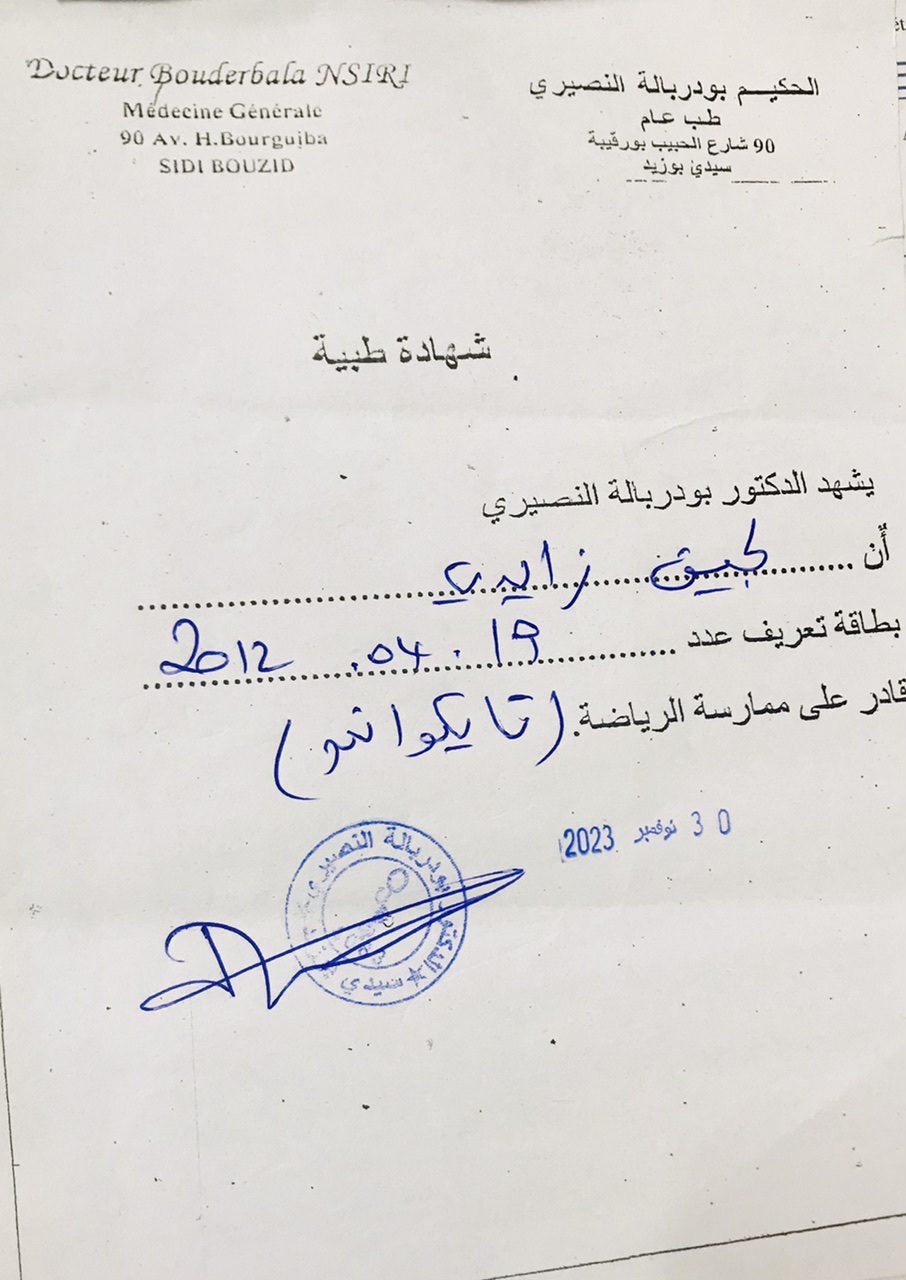 Docteur Bouderbala NSIRI
Médecine Générale
90 Av. H.Bourguiba
SIDI BOUZID
الحكيم بودربالة النصيري
طب عام
90 شارع الحبيب بورقيبة
سيدي بوزيد
شهادة طبية
يشهد الدكتور بودربالة النصيري
أن ........ زايدي
بطاقة تعريف عدد ........ 19 . 04 . 2012
قادر على ممارسة الرياضة. (تايكواندو)
30 نوفمبر 2023
الدكتور بودربالة النصيري
سيدي